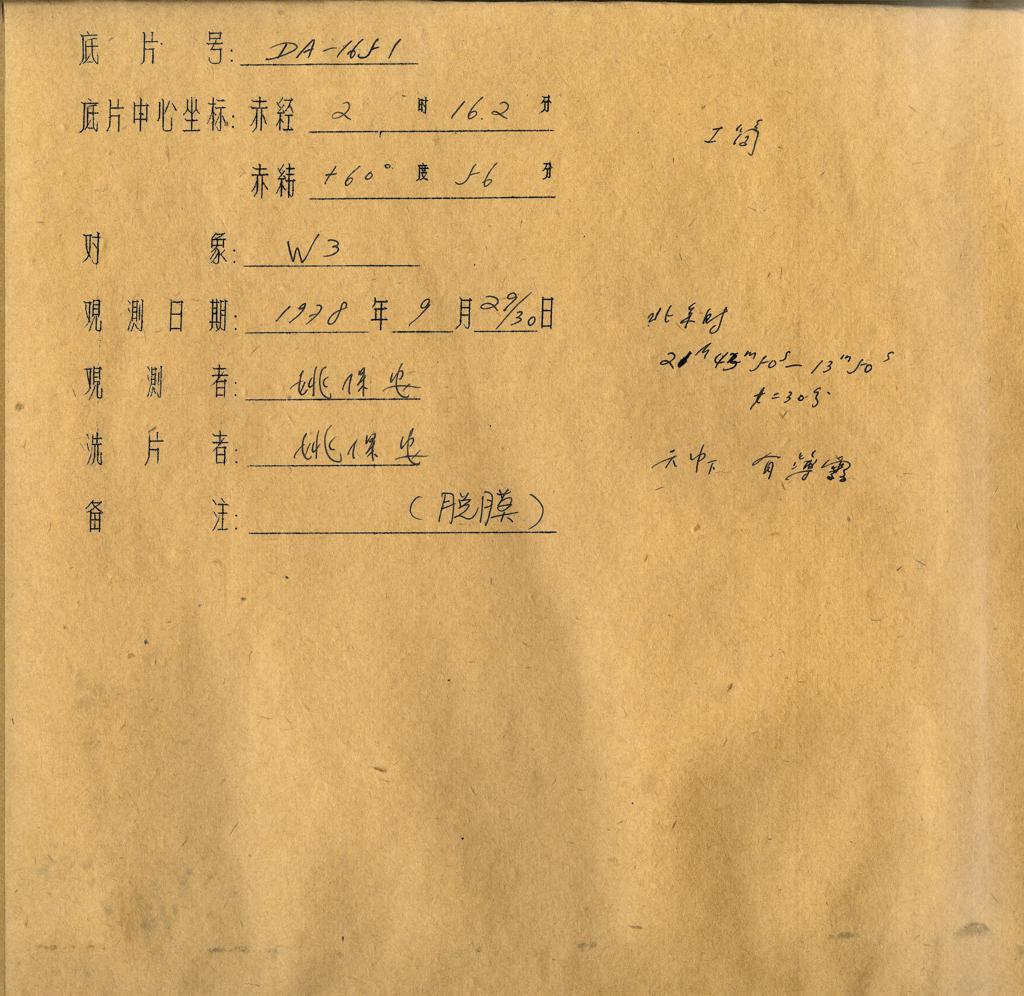 底片号: DA-1651
底片中心坐标: 赤经 2 时 16.2 分
赤纬 +60° 度 56 分
对象: W3
观测日期: 1978 年 9 月 29/30 日
观测者: 姚保安
洗片者: 姚保安
备注: (脱膜)
北京时
21ʰ 43ᵐ 50ˢ — 13ᵐ 50ˢ
t=30分
天中下 有薄雾